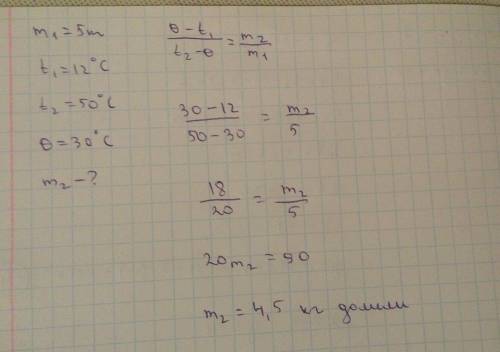 m₁ = 5 кг
t₁ = 12°C
t₂ = 50°C
θ = 30°C
m₂ - ?
(θ - t₁)/(t₂ - θ) = m₂/m₁
(30 - 12)/(50 - 30) = m₂/5
18/20 = m₂/5
20m₂ = 90
m₂ = 4,5 кг долили